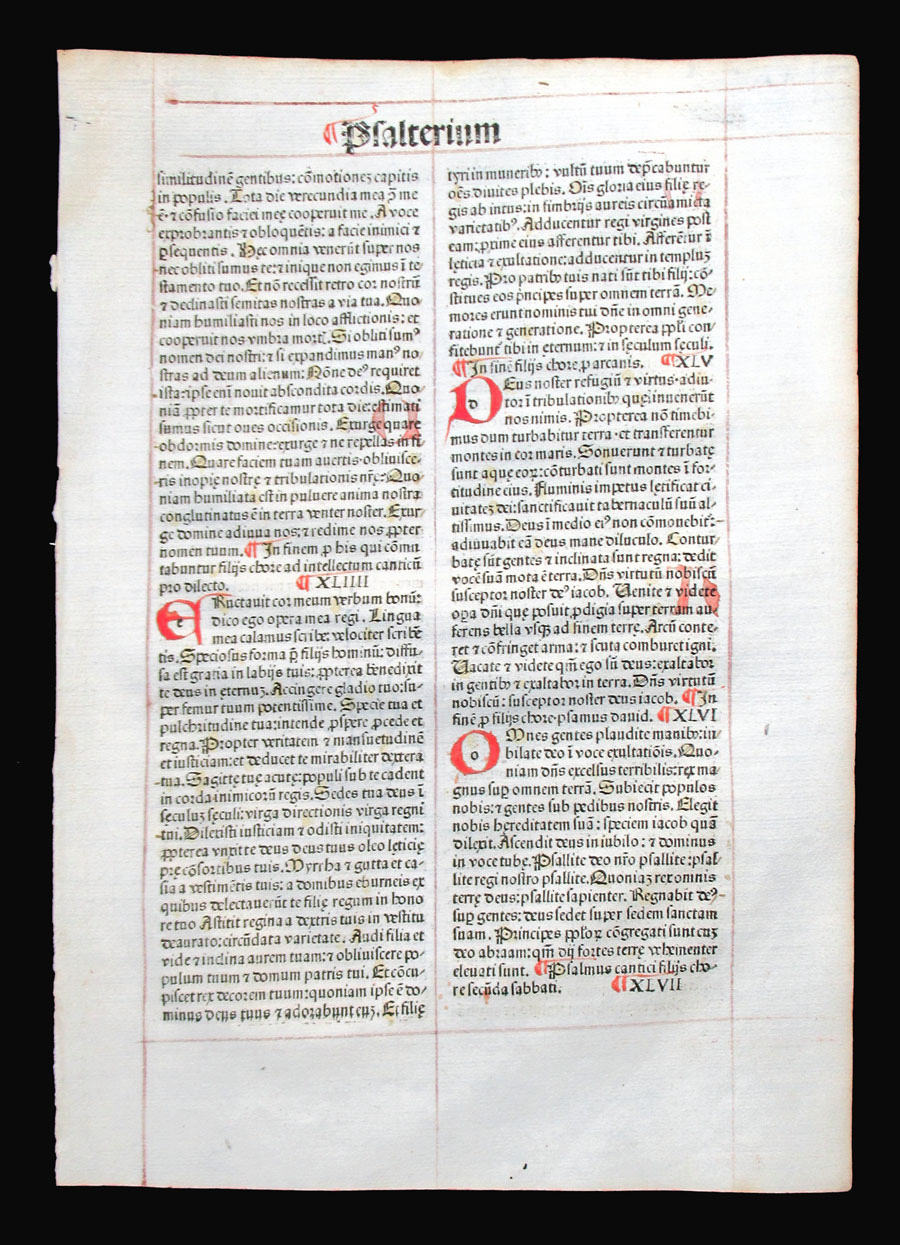 ¶ Psalterium
similitudinē gentibus: cōmotionez capitis
in populis. Tota die verecundia mea ꝯ me
ē· ⁊ cōfusio faciei meę cooperuit me. A voce
exprobrantis ⁊ obloquētis: a facie inimici ⁊
ꝑsequentis. Hec omnia venerūt super nos
nec obliti sumus te: ⁊ inique non egimus ī te-
stamento tuo. Et nō recessit retro cor nostrū
⁊ declinasti semitas nostras a via tua. Quo-
niam humiliasti nos in loco afflictionis: et
cooperuit nos vmbra mort. Si obliti sumꝰ
nomen dei nostri: ⁊ si expandimus manꝰ no-
stras ad deum alienum: Nōne deꝰ requiret
ista: ipse enī nouit abscondita cordis. Quo-
niā ꝓpter te mortificamur tota die: estimati
sumus sicut oues occisionis. Exurge quare
obdormis domine: exurge ⁊ ne repellas in fi-
nem. Quare faciem tuam auertis· obliuisce-
ris inopię nostrę ⁊ tribulationis nrę: Quo-
niam humiliata est in puluere anima nostra
conglutinatus ē in terra venter noster. Exur-
ge domine adiuua nos: ⁊ redime nos ꝓpter
nomen tuum. ¶ In finem ꝑ his qui cōmu
tabuntur filijs chore ad intellectum canticū
pro dilecto. ¶ XLIIII
ERuctauit cor meum verbum bonū:
dico ego opera mea regi. Lingua
mea calamus scribe: velociter scribē
tis. Speciosus forma p̄ filijs hominū: diffu-
sa est gratia in labijs tuis: ꝓpterea benedixit
te deus in eternuz. Accingere gladio tuo: su-
per femur tuum potentissime. Specie tua et
pulchritudine tua: intende ꝓspere ꝓcede et
regna. Propter veritatem ⁊ mansuetudinē
et iusticiam: et deducet te mirabiliter dextera
tua. Sagittę tuę acutę: populi sub te cadent
in corda inimicorū regis. Sedes tua deus ī
sęculuz sęculi: virga directionis virga regni
tui. Dilexisti iusticiam ⁊ odisti iniquitatem:
ꝓpterea vnxit te deus deus tuus oleo lęticię
prę cōsortibus tuis. Myrrha ⁊ gutta et ca-
sia a vestimētis tuis: a domibus eburneis ex
quibus delectauerūt te filię regum in hono
re tuo Astitit regina a dextris tuis in vestitu
deaurato: circūdata varietate. Audi filia et
vide ⁊ inclina aurem tuam: ⁊ obliuiscere po-
pulum tuum ⁊ domum patris tui. Et cōcu-
piscet rex decorem tuum: quoniam ipse ē do-
minus deus tuus ⁊ adorabunt euz. Et filię
tyri in muneribꝰ: vultū tuum dep̄cabuntur
oēs diuites plebis. Oīs gloria eius filię re-
gis ab intus: in fimbrijs aureis circūamicta
varietatibꝰ. Adducentur regi virgines post
eam: ꝓxime eius afferentur tibi. Afferētur ī
lęticia ⁊ exultatione: adducentur in templuz
regis. Pro patribꝰ tuis nati sūt tibi filij: cō-
stitues eos p̄ncipes super omnem terrā. Me-
mores erunt nominis tui dn̄e in omni gene-
ratione ⁊ generatione. Propterea ppl̄i con-
fitebunt tibi in eternum: ⁊ in sęculum sęculi.
¶ In fine filijs chore, p arcanis. ¶ XLV
DEus noster refugiū ⁊ virtus· adiu-
tor ī tribulationibꝰ quę inuenerūt
nos nimis. Propterea nō timebi-
mus dum turbabitur terra· et transferentur
montes in cor maris. Sonuerunt ⁊ turbatę
sunt aque eoꝝ: cōturbati sunt montes ī for-
titudine eius. Fluminis impetus lętificat ci-
uitatez dei: sanctificauit tabernaculū suū al-
tissimus. Deus ī medio eiꝰ non cōmouebit:
adiuuabit eā deus mane diluculo. Contur-
batę sūt gentes ⁊ inclinata sunt regna: dedit
vocē suā mota ē terra. Dn̄s virtutū nobiscū
susceptor noster deꝰ iacob. Uenite ⁊ videte
opa dn̄i quę posuit ꝓdigia super terram au-
ferens bella vsqꝫ ad finem terrę. Arcū conte-
ret ⁊ cōfringet arma: ⁊ scuta comburet igni.
Uacate ⁊ videte qm̄ ego sū deus: exaltabor
in gentibꝰ ⁊ exaltabor in terra. Dn̄s virtutū
nobiscū: susceptor noster deus iacob. ¶ In
finē ꝓ filijs chore· psamus dauid. ¶ XLVI
OMnes gentes plaudite manibꝰ: iu-
bilate deo ī voce exultatiōis. Quo-
niam dn̄s excelsus terribilis: rex ma
gnus suꝑ omnem terrā. Subiecit populos
nobis: ⁊ gentes sub pedibus nostris. Elegit
nobis hereditatem suā: speciem iacob quā
dilexit. Ascendit deus in iubilo: ⁊ dominus
in voce tubę. Psallite deo nr̄o psallite: psal-
lite regi nostro psallite. Quoniaz rex omnis
terrę deus: psallite sapienter. Regnabit deꝰ
suꝑ gentes: deus sedet super sedem sanctam
suam. Principes ppl̄oꝝ cōgregati sunt cuz
deo abraam: qm̄ dij fortes terrę veheinenter
eleuati sunt. ¶ Psalmus cantici filijs cho-
re secūda sabbati. ¶ XLVII